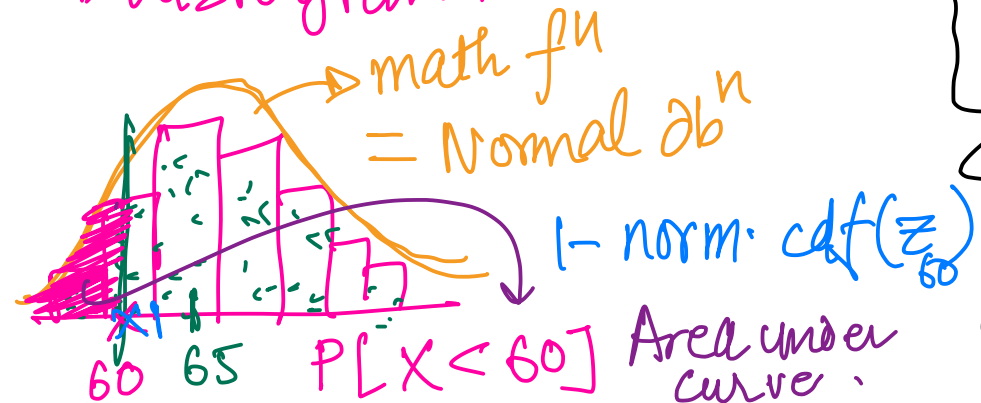 math fⁿ
= Normal ∂bⁿ
1- norm. cdf(z₆₀)
60 65 P[X < 60] Area under
curve.